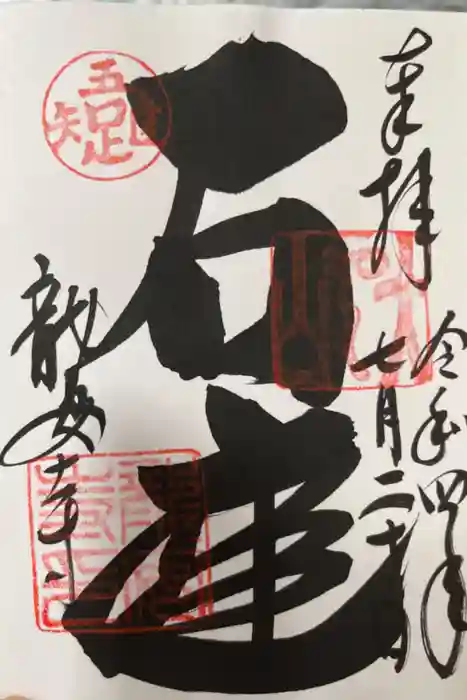 奉拝
令和四年
七月二十
石庭
龍安寺
吾唯足知